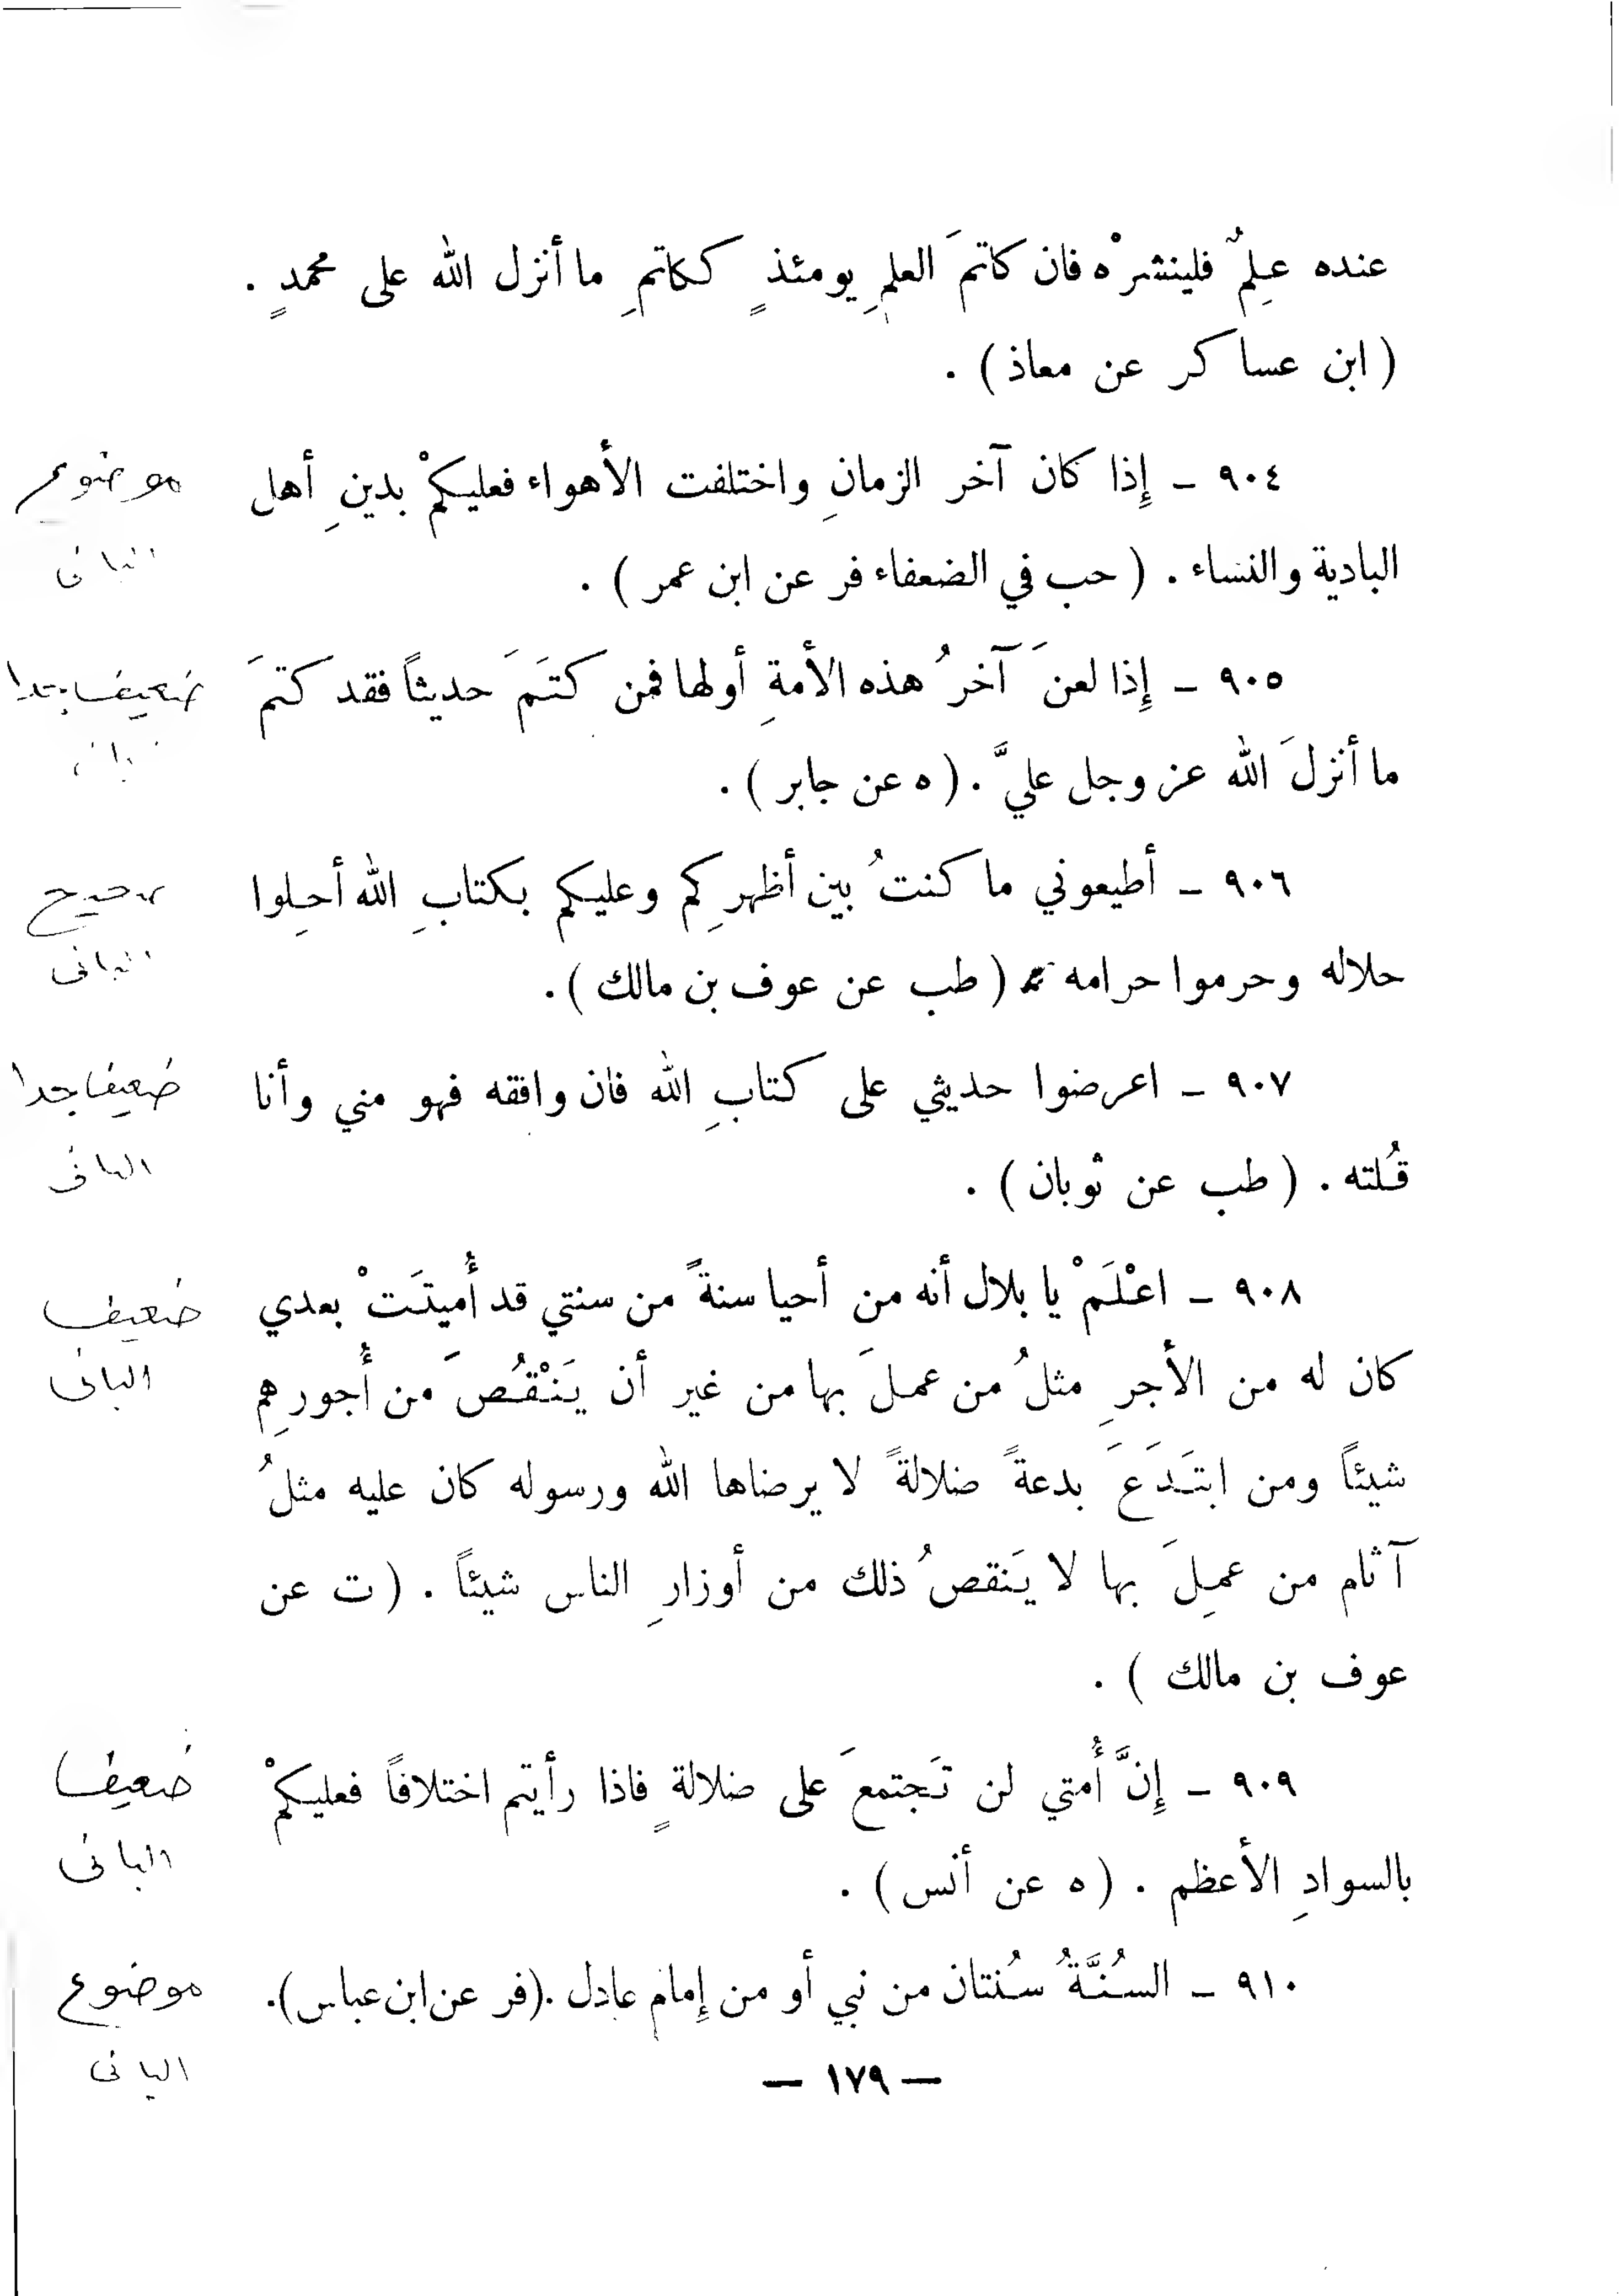 عنده عِلمٌ فلينشرْه فان كاتمَ العلمِ يومئذٍ ككاتمِ ما أنزل الله على محمدٍ .
( ابن عساكر عن معاذ ) .
٩٠٤ – إِذا كان آخر الزمانِ واختلفت الأهواء فعليكمْ بدينِ أهل
موضوع
البادية والنساء . ( حب في الضعفاء فر عن ابن عمر ) .
البانى
٩٠٥ – إِذا لعنَ آخرُ هذه الأمةِ أولها فمن كتَمَ حديثاً فقد كتمَ
ضعيف جدا
ما أنزلَ الله عز وجل عليَّ . ( ه عن جابر ) .
٩٠٦ – أطيعوني ما كنتُ بين أظهرِكم وعليكم بكتابِ الله أحِلوا
صحيح
حلاله وحرموا حرامه ( طب عن عوف بن مالك ) .
البانى
٩٠٧ – اعرضوا حديثي على كتابِ الله فان وافقه فهو مني وأنا
ضعيف جدا
قُلته . ( طب عن ثوبان ) .
البانى
٩٠٨ – اعْلَمْ يا بلال أنه من أحيا سنةً من سنتي قد أُميتَتْ بعدي
ضعيف
كان له من الأجرِ مثلُ من عملَ بها من غير أن يَنْقُصَ من أُجورِهم
البانى
شيئاً ومن ابتَدَعَ بدعةً ضلالةً لا يرضاها الله ورسوله كان عليه مثلُ
آثام من عمِلَ بها لا يَنقصُ ذلك من أوزارِ الناس شيئاً . ( ت عن
عوف بن مالك ) .
٩٠٩ – إِنَّ أُمتي لن تَجتمعَ على ضلالةٍ فاذا رأيتم اختلافاً فعليكمْ
ضعيف
بالسوادِ الأعظم . ( ه عن أنس ) .
البانى
٩١٠ – السُنَّةُ سُنتان من نبي أو من إِمام عادل . (فر عن ابن عباس).
موضوع
البانى
– ١٧٩ –